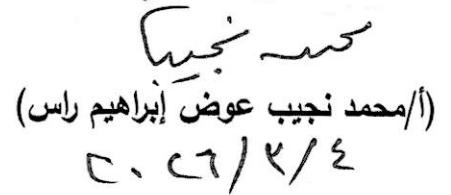 محمد نجيب
(أ/محمد نجيب عوض إبراهيم راس)
٢٠٢٦/٣/٤